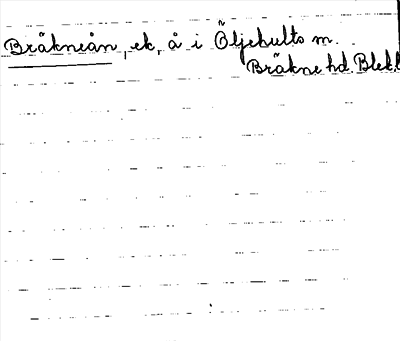 Bräkneån, ek, å i Öljehults sn.
Bräkne hd. Blek.